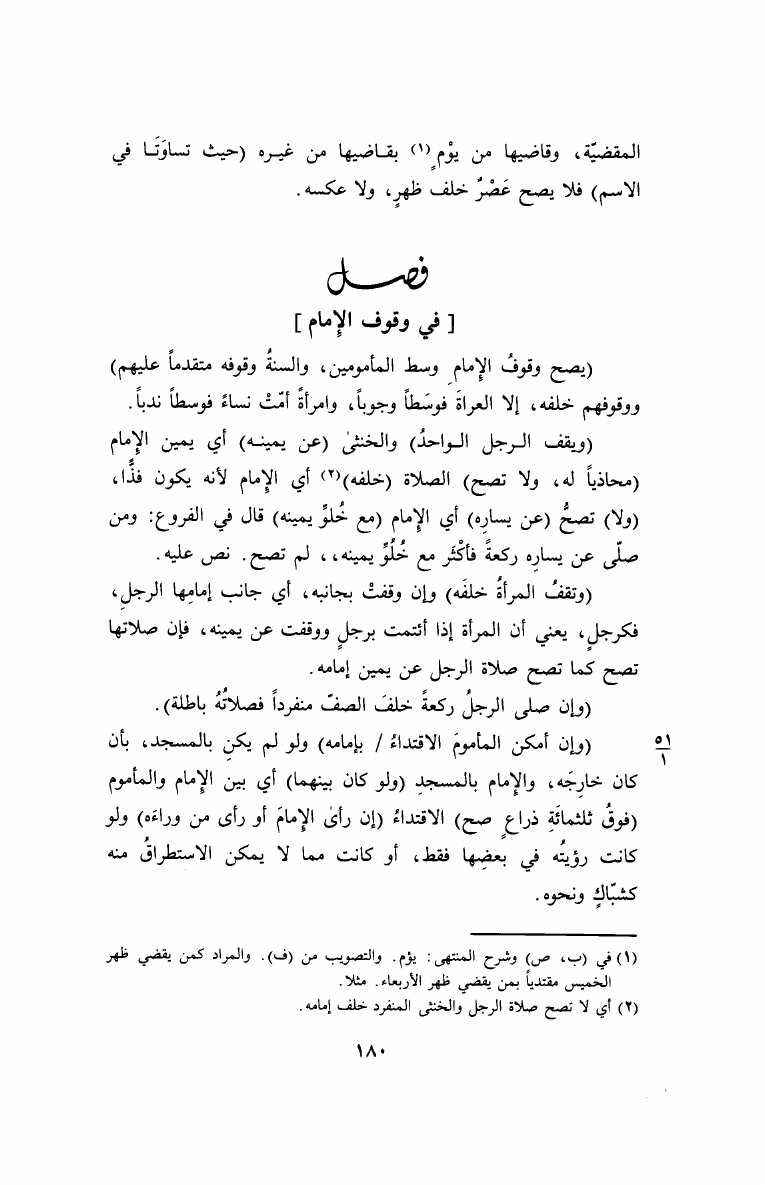 المقضيّة، وقاضيها من يوْمٍ(١) بقـاضيها من غيـره (حيث تساوَتَـا في
الاسم) فلا يصح عَصْرٌ خلف ظهرٍ، ولا عكسه.
فصل
[ في وقوف الإمام ]
(يصح وقوفُ الإمامِ وسط المأمومين، والسنةُ وقوفه متقدماً عليهم)
ووقوفهم خلفه، إلا العراةَ فوسَطاً وجوباً، وامرأةً أمّتْ نساءً فوسطاً ندباً.
(ويقف الـرجل الـواحدُ) والخنثىٰ (عن يمينـه) أي يمين الإمام
(محاذياً له، ولا تصح) الصلاة (خلفه)(٢) أي الإمام لأنه يكون فذًّا،
(ولا) تصحُّ (عن يسارِه) أي الإمام (مع خُلوِّ يمينه) قال في الفروع: ومن
صلّى عن يسارِه ركعةً فأكْثَر مع خُلُوِّ يمينه،، لم تصح. نص عليه.
(وتقفُ المرأةُ خلفَه) وإن وقفتْ بجانبه، أي جانب إمامِها الرجلِ،
فكرجلٍ، يعني أن المرأة إذا أئتمت برجلٍ ووقفت عن يمينه، فإن صلاتها
تصح كما تصح صلاة الرجل عن يمين إمامه.
(وإن صلى الرجلُ ركعةً خلفَ الصفّ منفرداً فصلاتُهُ باطلة).
(وإن أمكن المأمومَ الاقتداءُ / بإمامه) ولو لم يكنِ بالمسجد، بأن
٥١
١
كان خارجَه، والإمام بالمسجدِ (ولو كان بينهما) أي بين الإمام والمأموم
(فوقُ ثلثمائَةِ ذراعٍ صح) الاقتداءُ (إن رأىٰ الإمامَ أو رأى من وراءَه) ولو
كانت رؤيتُه في بعضِها فقط، أو كانت مما لا يمكن الاستطراقُ منه
كشبّاكٍ ونحوه.
(١) في (ب، ص) وشرح المنتهى: يؤم. والتصويب من (ف). والمراد كمن يقضي ظهر
الخميس مقتدياً بمن يقضي ظهر الأربعاء. مثلا.
(٢) أي لا تصح صلاة الرجل والخنثى المنفرد خلف إمامه.
١٨٠